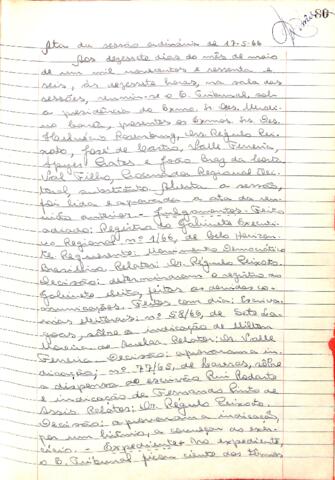 80
Ata da sessão ordinária de 17-5-66
Aos dezessete dias do mês de maio
de um mil novecentos e sessenta e
seis, às dezessete horas, na sala das
sessões, reuniu-se o E. Tribunal, sob
a presidência do Exmo. Sr. Des.
presentes os Exmos. Srs. Des.
Helvécio Rosenburg, Drs. Régulo Pei-
xoto, José de Castro, Valle Ferreira,
e João Braz da Costa
Val Filho, Procurador Regional Elei-
toral, substituto. Aberta a sessão,
foi lida e aprovada a ata da reu-
nião anterior. - Julgamentos. - Feito
adiado: Registro do Gabinete Executi-
vo Regional nº 1/66, de Belo Horizon-
te. Requerente: Movimento Democrático
Brasileiro. Relator: Dr. Régulo Peixoto.
Decisão: determinaram o registro do
Gabinete eleito, feitas as devidas co-
municações. Feitos com dia: Escriva-
nias eleitorais: nº 58/69, de Sete La-
goas, sôbre a indicação de Milton
Moreira de Relator: Dr. Valle
Ferreira. Decisão: aprovaram a in-
dicação; nº 77/65, de Lavras, sôbre
a dispensa do escrivão Rui
e indicação de Fernando Pinto de
Assis. Relator: Dr. Régulo Peixoto.
Decisão: aprovaram a indicação,
por um biênio, a começar do exer-
cício. - Expediente: No expediente,
o E. Tribunal ficou ciente dos